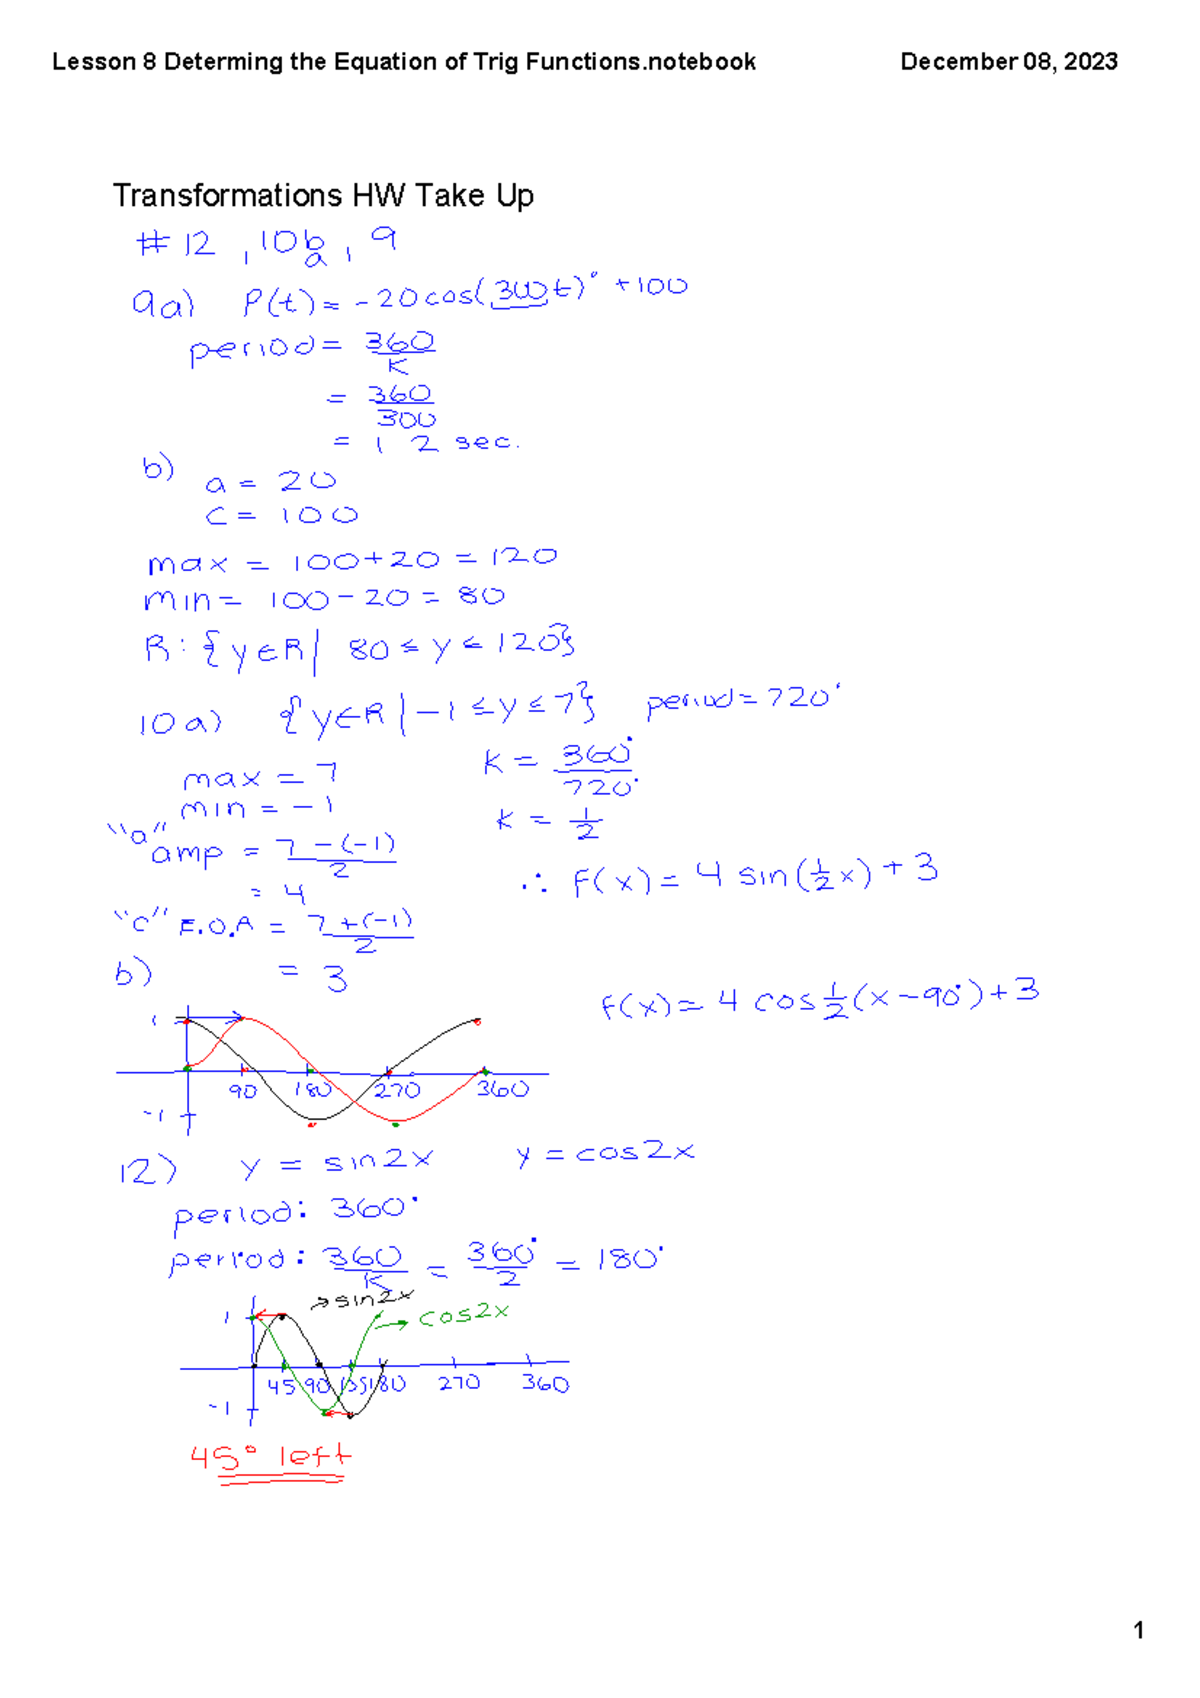 Lesson 8 Determing the Equation of Trig Functions.notebook December 08, 2023
Transformations HW Take Up
#12, 10b, 9
a
9a) P(t) = -20cos(300t)° +100
period = 360/K
= 360/300
= 1 2 sec.
b) a = 20
C = 100
max = 100+20 = 120
min = 100-20 = 80
R: {y∈R| 80 ≤ y ≤ 120}
10a) {y∈R|-1 ≤ y ≤ 7} period = 720°
max = 7
min = -1
"a" amp = 7-(-1)/2
= 4
"c" E.O.A = 7+(-1)/2
= 3
K = 360°/720°
K = 1/2
∴ f(x) = 4 sin(1/2x) + 3
b) f(x) = 4 cos 1/2(x-90°)+3
1
90 180 270 360
-1
12) y = sin2x y = cos2x
period: 360°
period: 360/K = 360°/2 = 180°
→sin2x
1 → cos2x
45 90 135 180 270 360
-1
45° left
1